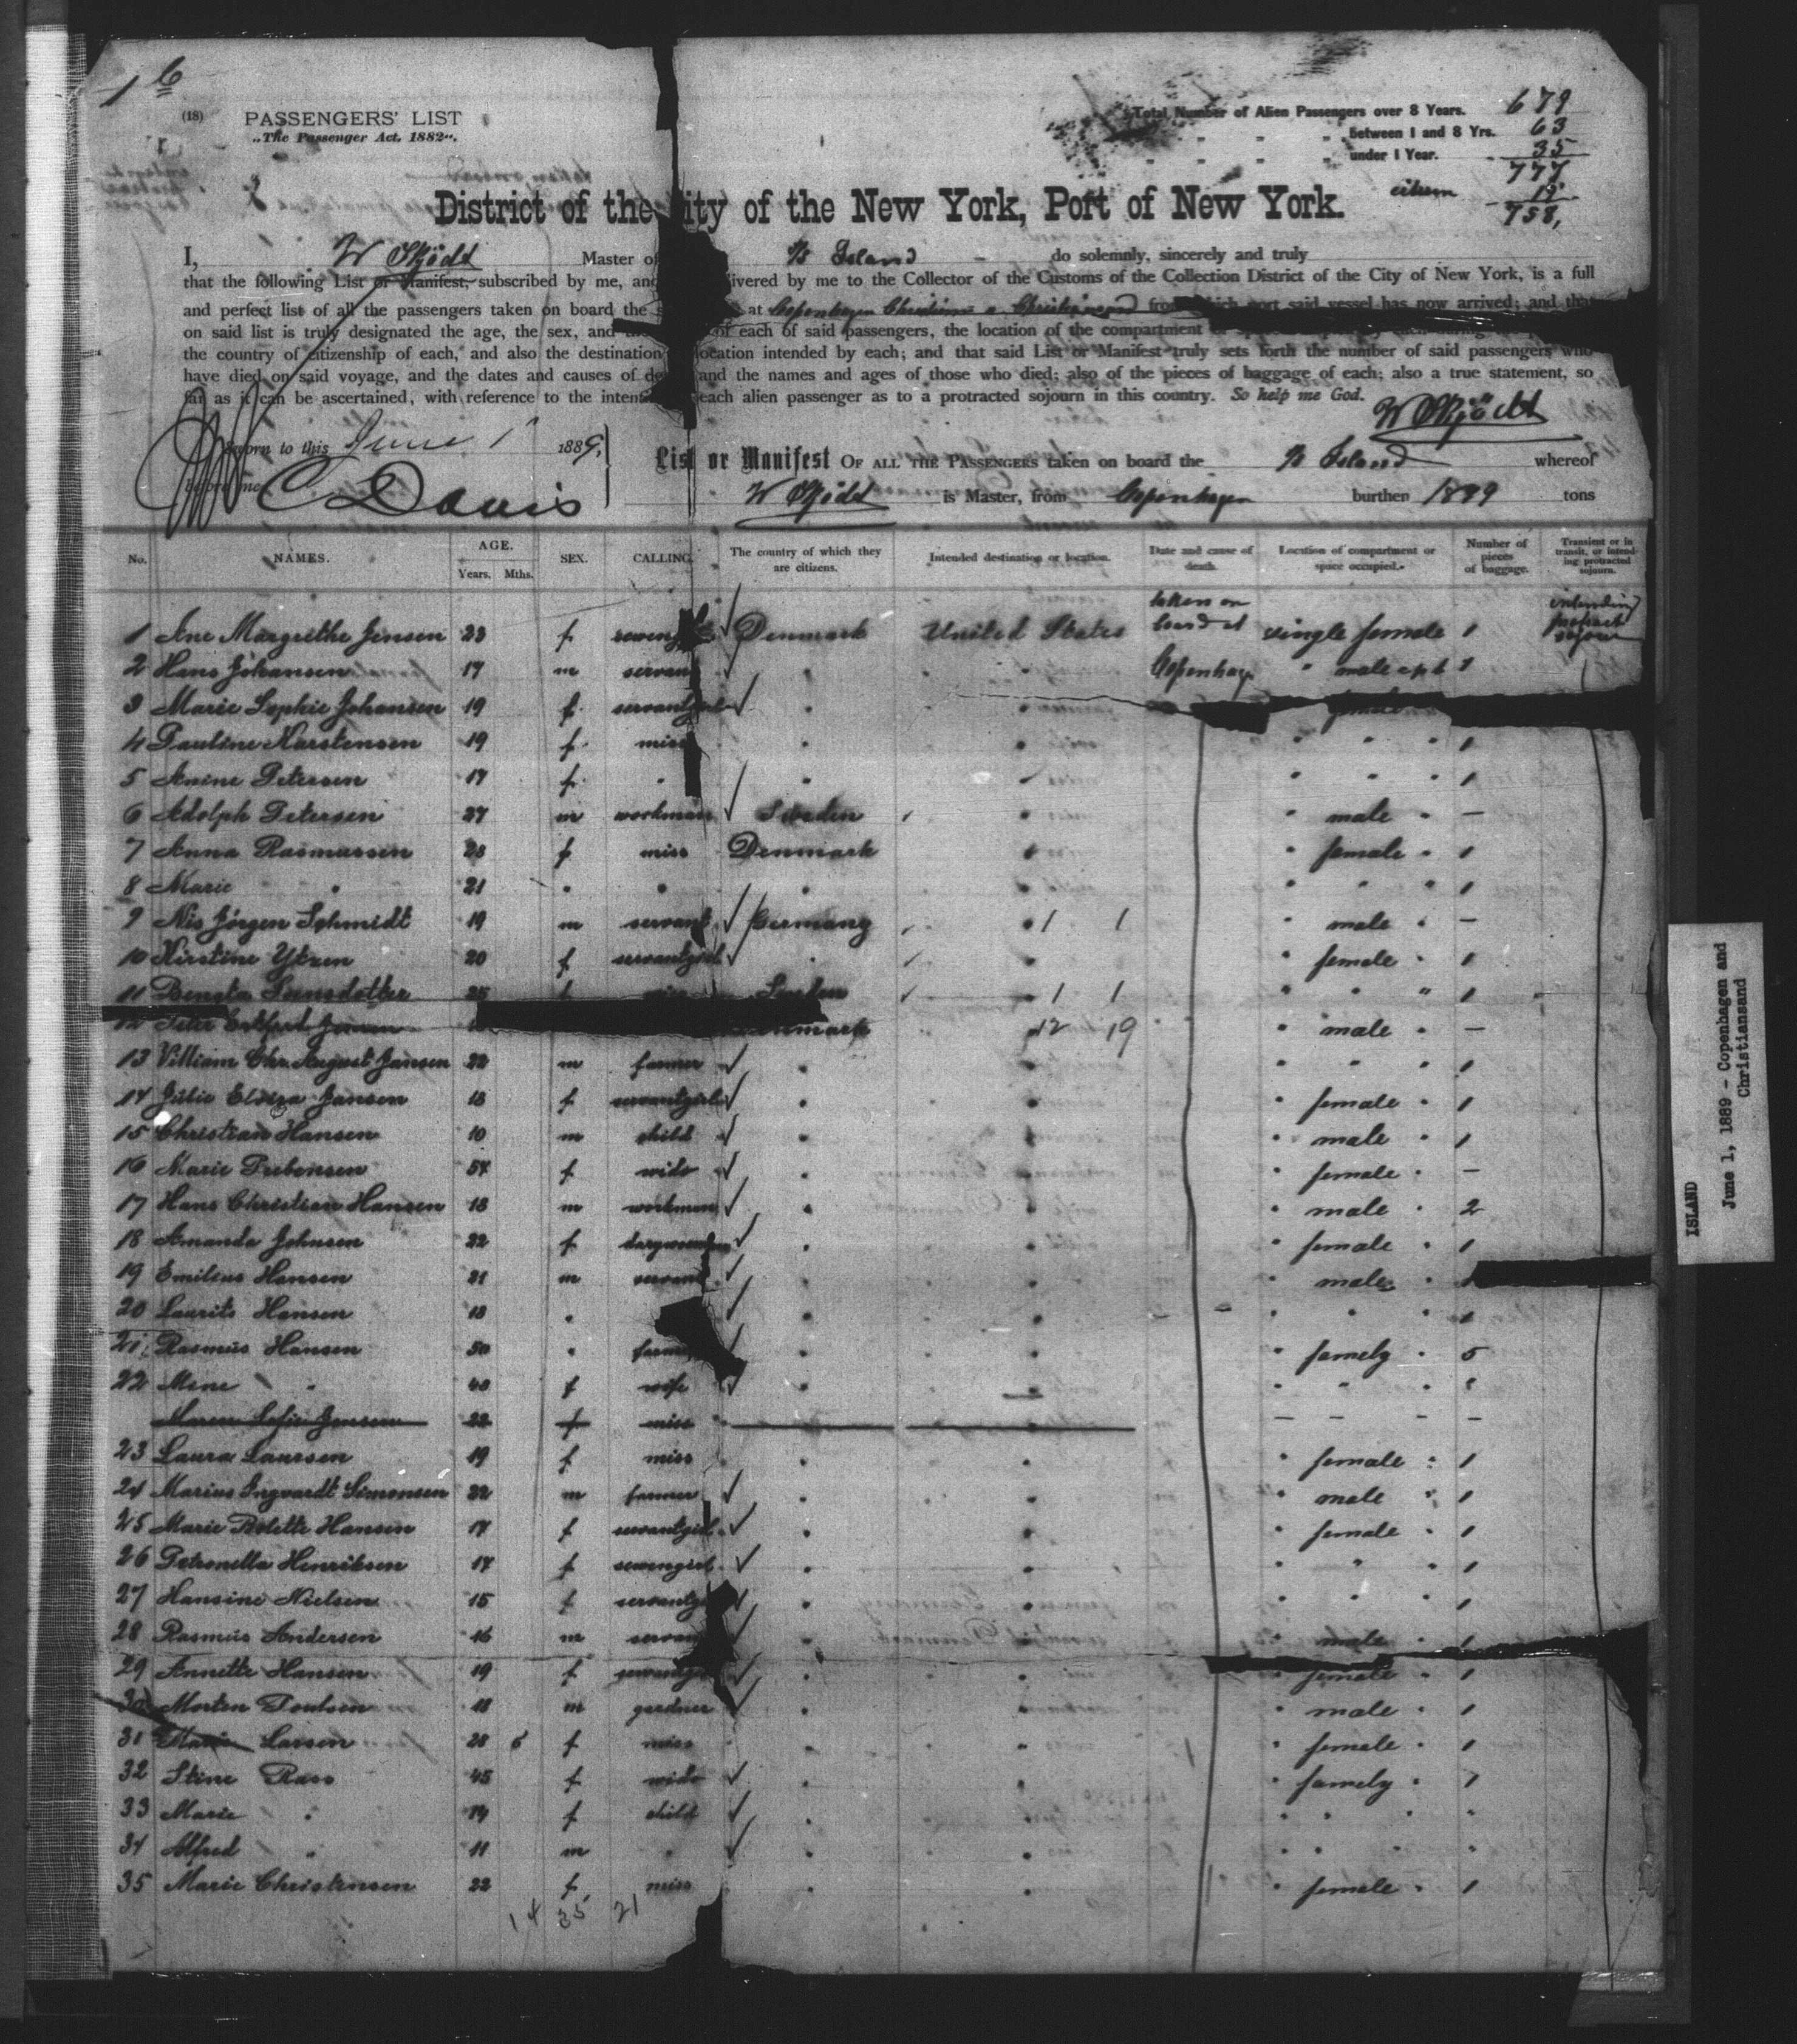 16
(18) PASSENGERS' LIST
„The Passenger Act, 1882“.
Total Number of Alien Passengers over 8 Years. 679
" " " " between 1 and 8 Yrs. 63
" " " " under 1 Year. 35
777
758,
District of the City of the New York, Port of New York.
I, W Skjödt Master of S/S Island do solemnly, sincerely and truly
that the following List or Manifest, subscribed by me, and delivered by me to the Collector of the Customs of the Collection District of the City of New York, is a full
and perfect list of all the passengers taken on board the at Copenhagen from which port said vessel has now arrived; and that
on said list is truly designated the age, the sex, and of each of said passengers, the location of the compartment
the country of citizenship of each, and also the destination location intended by each; and that said List or Manifest truly sets forth the number of said passengers who
have died on said voyage, and the dates and causes of and the names and ages of those who died; also of the pieces of baggage of each; also a true statement, so
far as it can be ascertained, with reference to the each alien passenger as to a protracted sojourn in this country. So help me God.
W Skjödt
Sworn to this June 1 1889,
before me C Davis
List or Manifest OF ALL THE PASSENGERS taken on board the S/S Island whereof
W Skjödt is Master, from Copenhagen burthen 1899 tons
No. NAMES. AGE. Years. Mths. SEX. CALLING. The country of which they are citizens. Intended destination or location. Date and cause of death. Location of compartment or space occupied. Number of pieces of baggage. Transient or in transit, or intending protracted sojourn.
1 Ane Margrethe Jensen 23 f Denmark United States taken on board at single female 1 intending protract sojour
2 Hans Johansen 17 m servant " " Copenhag " male 1
3 Marie Sophie Johansen 19 f servantgirl " " female
4 Pauline Karstensen 19 f miss " " " " " 1
5 Anine Petersen 17 f " " " " " " 1
6 Adolph Petersen 27 m workman Sweden " " male " —
7 Anna Rasmussen 23 f miss Denmark " " female " 1
8 Marie " 21 " " " " " " " 1
9 Nis Jörgen Schmidt 19 m servant Germany " 1 1 " male " —
10 Kirstine Ytzen 20 f servantgirl " " " female " 1
11 Bengta 25 f " 1 1 " " " 1
12 Peter Denmark 12 19 " male " —
13 Villiam Chr. August Jansen 22 m farmer " " " " " 1
14 Julie Elvira Jansen 18 f servantgirl " " " female " 1
15 Christian Hansen 10 m child " " " male " 1
16 Marie Prebensen 54 f wido " " " female " —
17 Hans Christian Hansen 18 m workman " " " male " 2
18 Amanda Johnsen 22 f " " " female " 1
19 Emilius Hansen 21 m servant " " " male "
20 Laurits Hansen 18 " " " " " " 1
21 Rasmus Hansen 50 " farmer " " " famely " 5
22 Mene " 40 f wife " " " " " "
Maren Sofie Jensen 22 f miss — — — —
23 Laura Laursen 19 f miss " " " female " 1
24 Marius Ingvardt Simonsen 22 m farmer " " " male " 1
25 Marie Bolette Hansen 17 f servantgirl " " " female " 1
26 Petronella Henriksen 17 f " " " " " 1
27 Hansine Nielsen 15 f servantgirl " " " " " 1
28 Rasmus Andersen 16 m servant " " " male 1
29 Annette Hansen 19 f servantgirl " " " female " 1
30 Morten Poulsen 18 m gardner " " " male " 1
31 Marie Larsen 28 6 f miss " " " female " 1
32 Stine Rass 45 f wido " " " famely " 1
33 Marie " 14 f child " " " " " "
34 Alfred " 11 m " " " " " " "
35 Marie Christensen 22 f miss " " " female " 1
14 35 21
ISLAND
June 1, 1889 - Copenhagen and
Christiansand